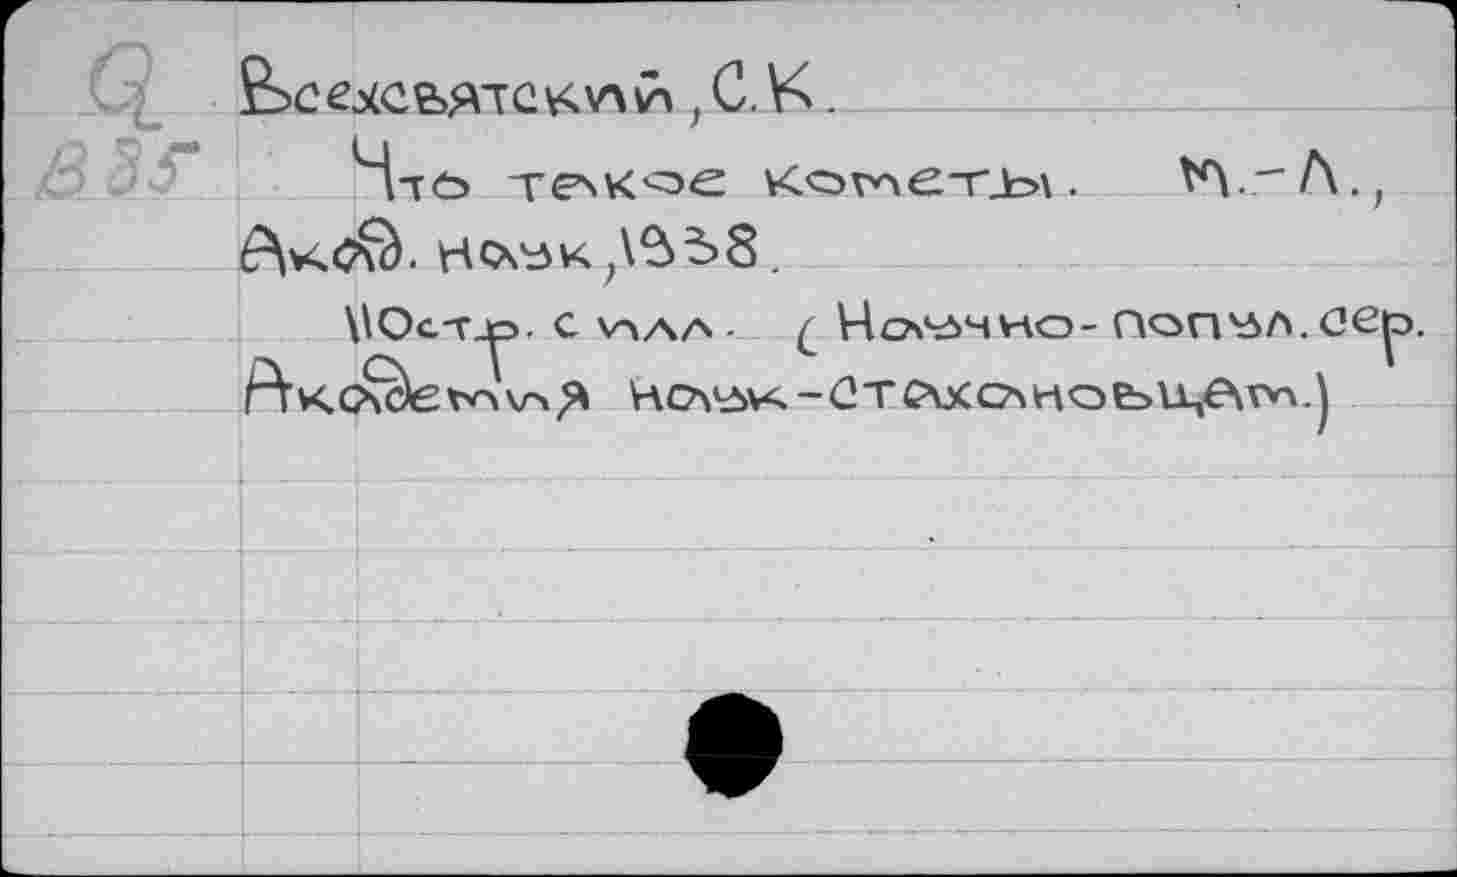 Q Всехсвятский, С.К.
В35 Что такое кометы. М.-Л.,
Акад. наук, 1938.
110стр. с илл. (Научно-попул. сер.
Академия наук-стахановцам.)